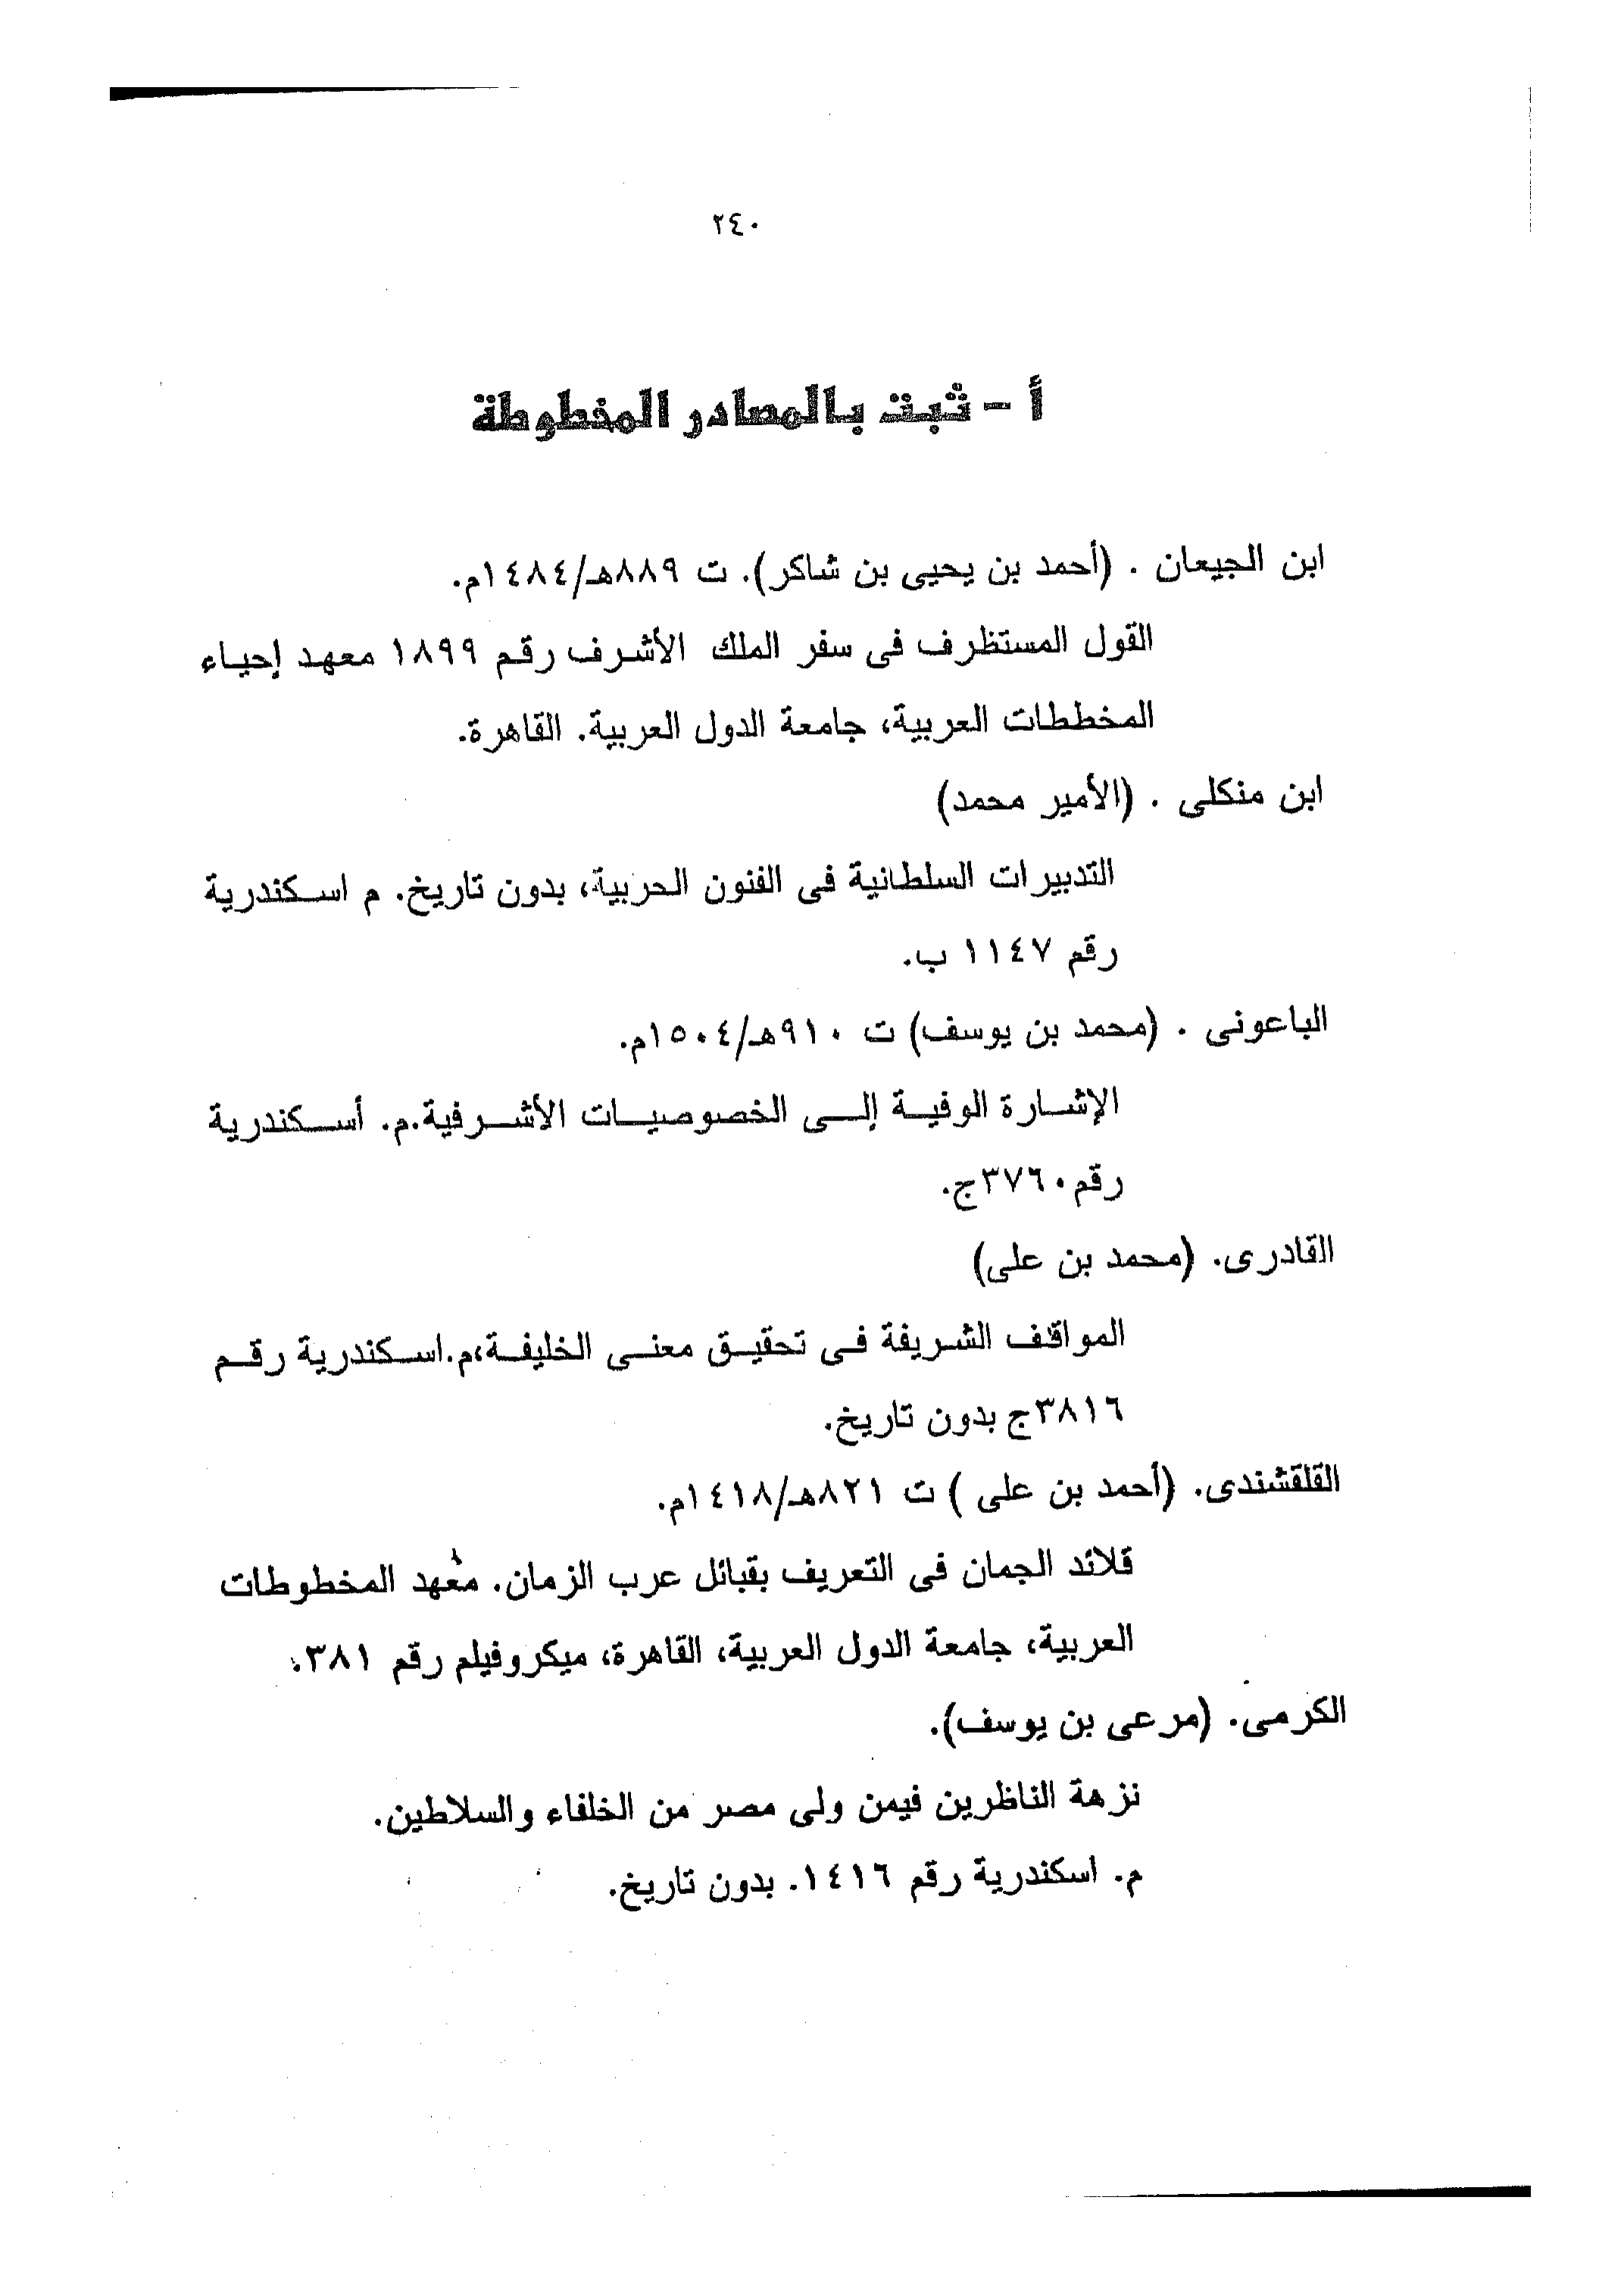 ٢٤٠
أ - ثبت بالمصادر المخطوطة
ابن الجيعان . (أحمد بن يحيى بن شاكر). ت ٨٨٩هـ/١٤٨٤م.
القول المستظرف فى سفر الملك الأشرف رقم ١٨٩٩ معهد إحياء
المخططات العربية، جامعة الدول العربية. القاهرة.
ابن منكلى . (الأمير محمد)
التدبيرات السلطانية فى الفنون الحربية، بدون تاريخ. م اسكندرية
رقم ١١٤٧ ب.
الباعونى . (محمد بن يوسف) ت ٩١٠هـ/١٥٠٤م.
الإشارة الوفية إلى الخصوصيات الأشرفية.م. أسكندرية
رقم ٣٧٦٠ج.
القادرى. (محمد بن على)
المواقف الشريفة فى تحقيق معنى الخليفة،م.اسكندرية رقم
٣٨١٦ج بدون تاريخ.
القلقشندى. (أحمد بن على ) ت ٨٢١هـ/١٤١٨م.
قلائد الجمان فى التعريف بقبائل عرب الزمان. معهد المخطوطات
العربية، جامعة الدول العربية، القاهرة، ميكروفيلم رقم ٣٨١.
الكرمى. (مرعى بن يوسف).
نزهة الناظرين فيمن ولى مصر من الخلفاء والسلاطين.
م. اسكندرية رقم ١٤١٦. بدون تاريخ.